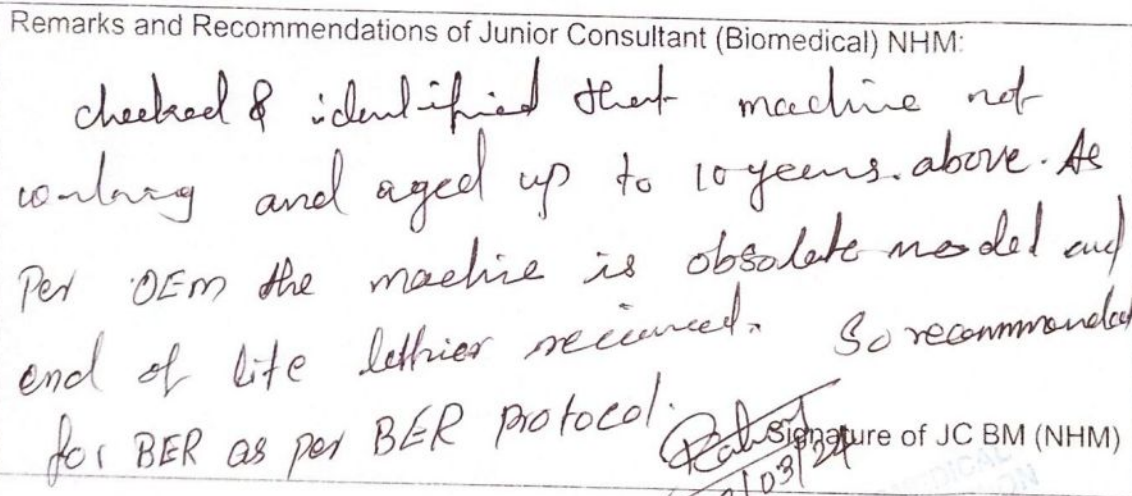 Remarks and Recommendations of Junior Consultant (Biomedical) NHM:
checked & identified that machine not
working and aged up to 10 years. above. As
Per OEM the machine is obsolate model and
end of life lethier received. So recommended
for BER as per BER protocol.
Signature of JC BM (NHM)
/03/24